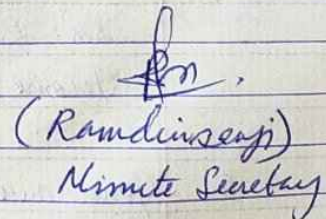 (Ramdinseaji)
Minute Secretary